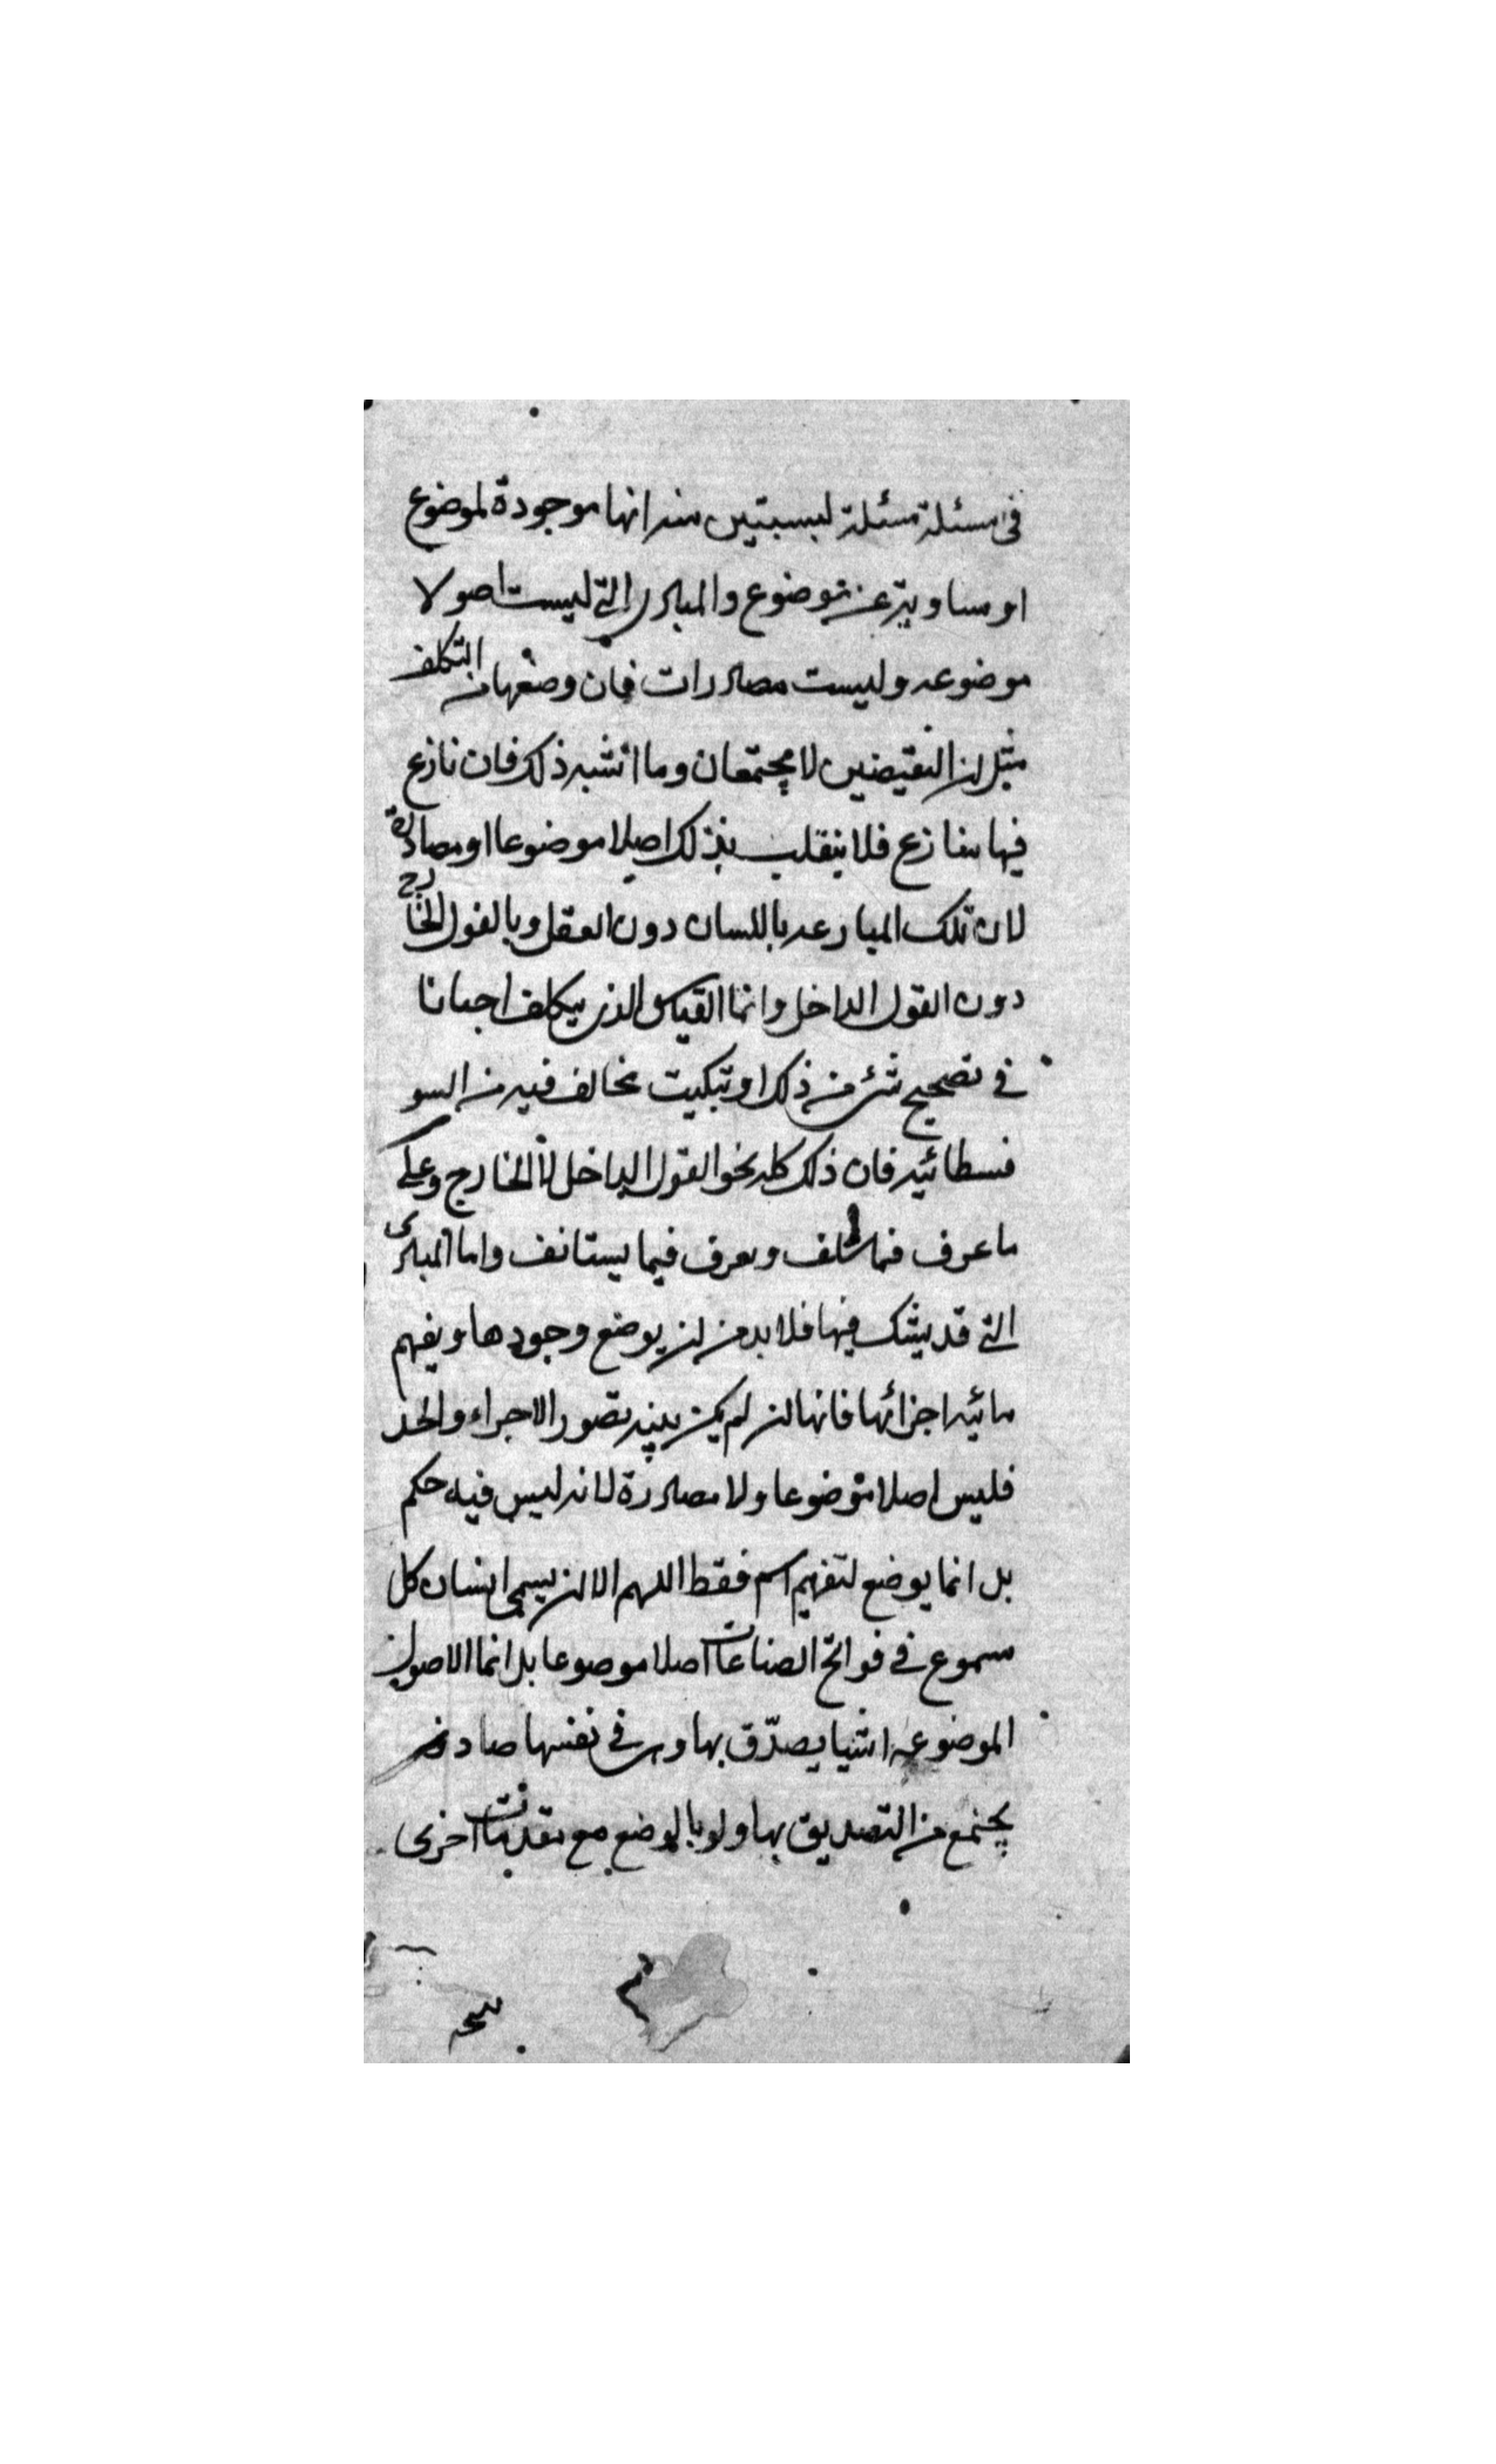 فى مسئلة مسئلة ليستبين منه انها موجودة لموضوع
او مساوية عن موضوع والمبادى التى ليست اصولا
موضوعه وليست مصادرات فان وضعها من التكلف
مثل ان النقيضين لا يجتمعان وما اشبه ذلك فان نازع
فيها منازع فلا ينقلب بذلك اصلا موضوعا او مصادرة
لان تلك المنازعه باللسان دون العقل وبالقول الخارج
دون القول الداخل وانما القياس الذى يتكلف احيانا
فى تصحيح شئ من ذلك او تبكيت مخالف فيه من السو
فسطائيه فان ذلك كله نحو القول الداخل لا الخارج وعلى
ما عرف فيما سلف ويعرف فيما يستانف واما المبادى
التى قد يشك فيها فلا بد من ان يوضع وجودها ويفهم
مائيه اجزائها فانها ان لم يكن بينه تصور الاجزاء والحد
فليس اصلا موضوعا ولا مصادرة لانه ليس فيه حكم
بل انما يوضع لتفهيم اسم فقط اللهم الا ان يسمى انسان كل
مسموع فى فواتح الصناعات اصلا موضوعا بل انما الاصول
الموضوعه اشيا يصدّق بها وهى فى نفسها صادقه
يجتمع من التصديق بها ولو بالوضع مع مقدمات اخرى